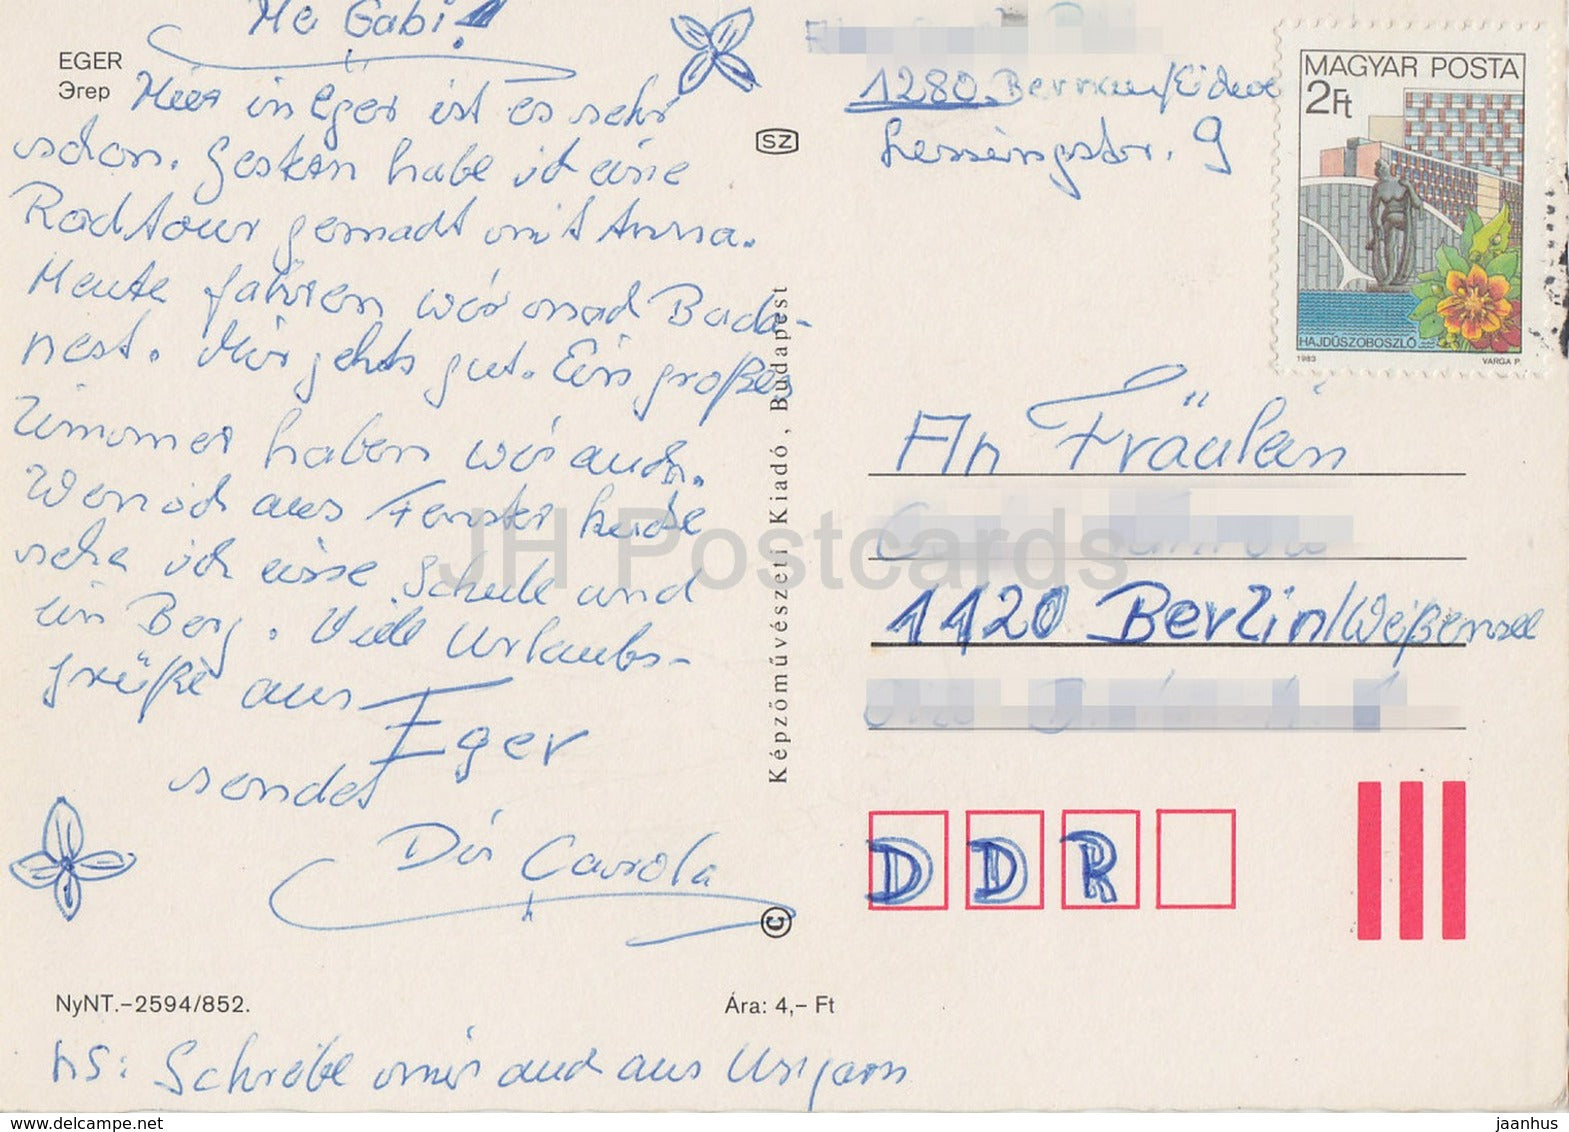 He Gabi!
EGER
Эгер
Hier in Eger ist es sehr
schön. Gestern habe ich eine
Radtour gemacht mit Anna.
Heute fahren wir nach Buda-
pest. Mir gehts gut. Ein großes
Zimmer haben wir auch.
Wen ich aus Fenster kucke
sehe ich eine Schule und
ein Berg. Viele Urlaubs-
grüße aus Eger
sendet
Dir Carola
NyNT.-2594/852.
Ára: 4,- Ft
NS: Schreibe mir auch aus Ungarn
SZ
Képzőművészeti Kiadó, Budapest
©
1280 Bernau/Eiche
Lessingstr. 9
MAGYAR POSTA
2Ft
HAJDÚSZOBOSZLÓ
1983 VARGA P.
An Fräulein
1120 Berlin/Weißensee
DDR
JH Postcards
delcampe.net
jaanhus